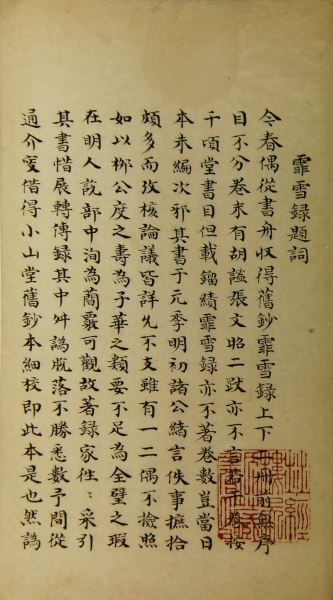 霏雪録題詞
今春偶從書舟收得舊鈔霏雪録上下二冊前無序
目不分卷末有胡謐張文昭二跋亦不言若干卷按
千頃堂書目但載鎦績霏雪録亦不著卷數豈當日
本未編次邪其書于元季明初諸公緒言佚事摭拾
頗多而攷核論議皆詳允不支雖有一二偶不撿照
如以柳公度之壽為子華之類要不足為全璧之瑕
在明人説部中洵為蕳覈可觀故著録家往〻采引
其書惜展轉傳録其中舛譌脱落不勝悉數予間從
通介叟借得小山堂舊鈔本細校即此本是也然譌